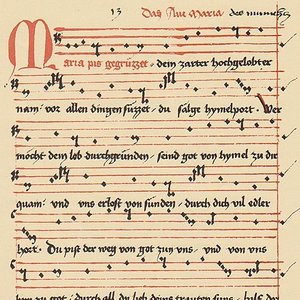 13 Das Aue Maria des münichs
Maria pis gegrüzzet · dein zarter hochgelobter
nam · vor allen dingen süzzet · du sälge hymelport · Wer
möcht dein lob durchgründen · seind got von hymel zu dir
quam · und vns erlost von sünden · durch dich vil edler
hort · Du pist der weg von got zu vns · und von vns